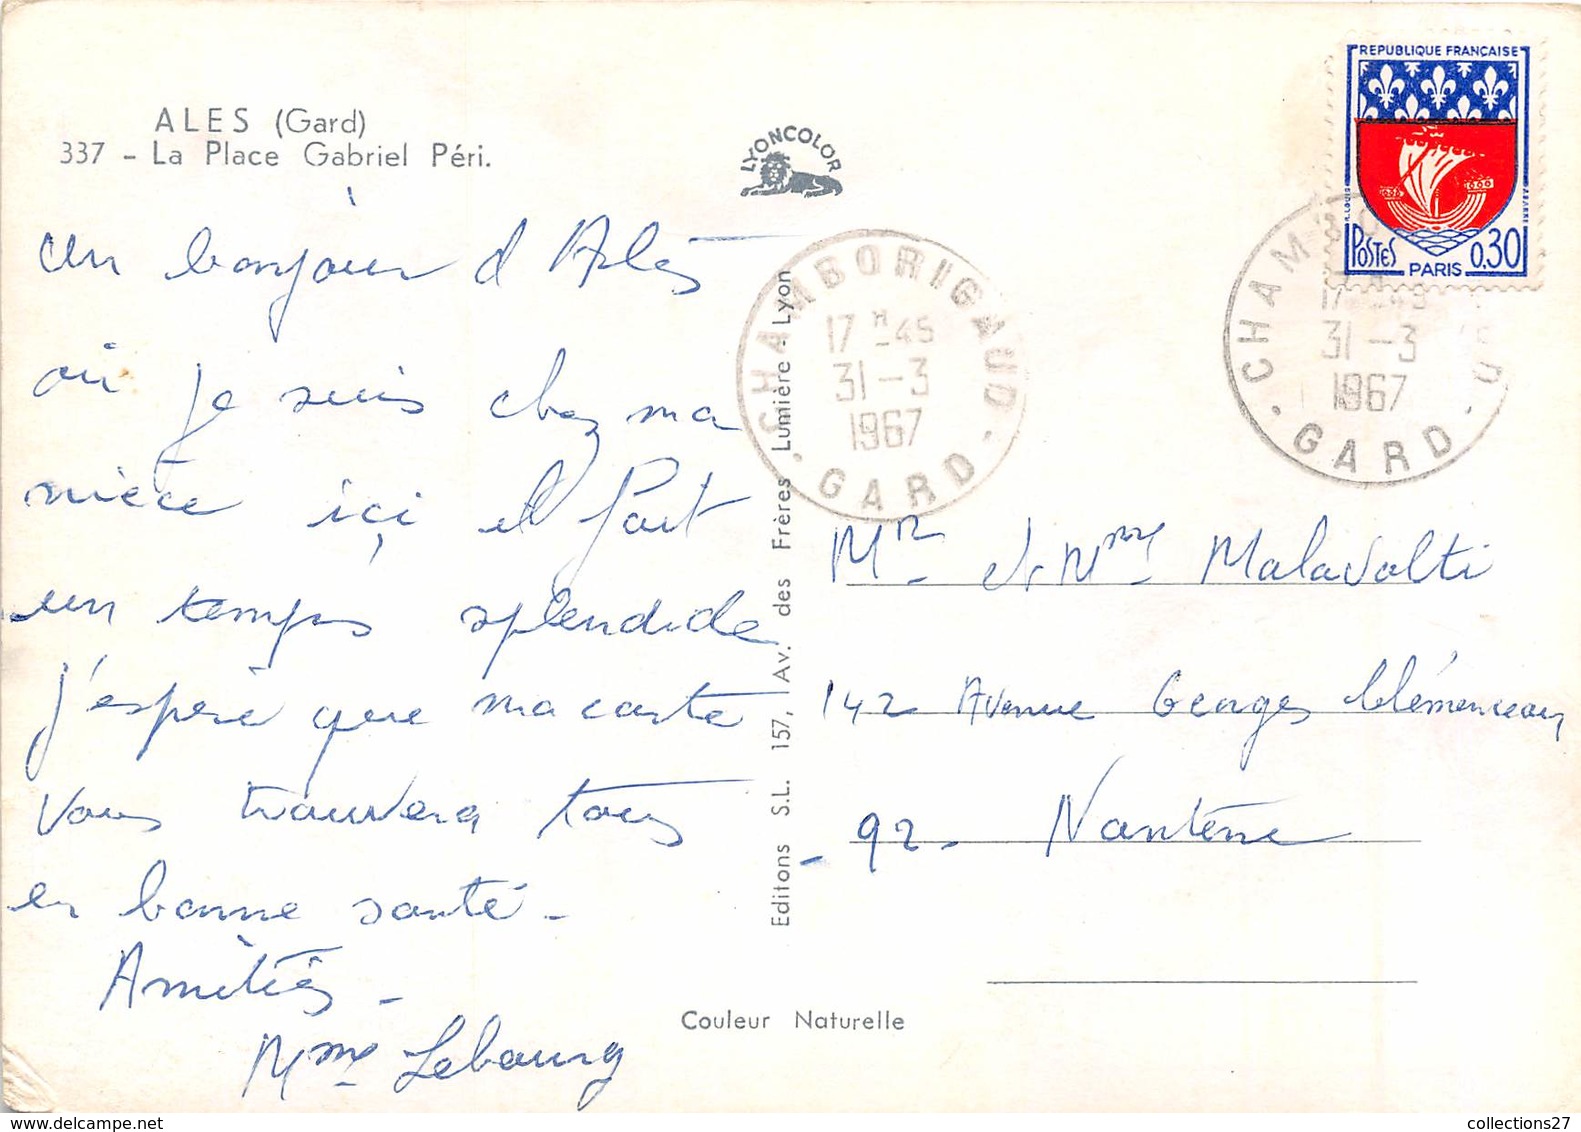 ALES (Gard)
337 - La Place Gabriel Péri.
LYONCOLOR
un bonjour d'Alès
où je suis chez ma
nièce içi il fait
un temps splendide
j'espère que ma carte
vous trouvera tous
en bonne santé -
Amitiés -
Mme Lebourg
Editons S.L. 157, Av. des Frères Lumière - Lyon
Couleur Naturelle
CHAMBORIGAUD
17 H -45
31-3
1967
GARD
REPUBLIQUE FRANÇAISE
POSTES 0,30
PARIS
CHAMBO
17 -45
31-3
1967
GARD
Mr et Mme Malavolti
142 Avenue Georges Clémenceau
- 92 - Nanterre
collections27